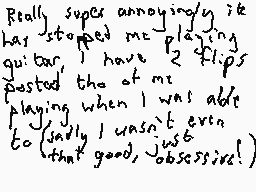 Really super annoyingly it
has stopped me playing
guitar, I have 2 flips
posted tho of me
playing when I was able
to (sadly I wasn't even
that good, just
obsessive!)